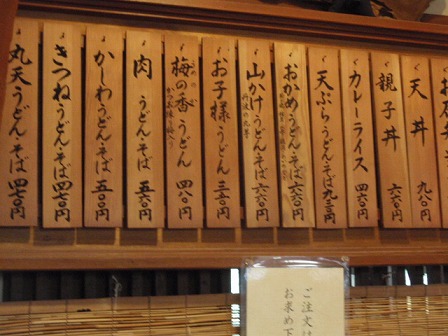 天丼 九八〇円
親子丼 六六〇円
カレーライス 四六〇円
天ぷらうどん・そば 九二〇円
おかめうどん・そば 六六〇円
山かけうどん・そば 六六〇円
お子様うどん 三一〇円
梅の香うどん 四八〇円
肉うどん・そば 五六〇円
かしわうどん・そば 五一〇円
きつねうどん・そば 四七〇円
丸天うどん・そば 四七〇円
ご注文は
お求め下